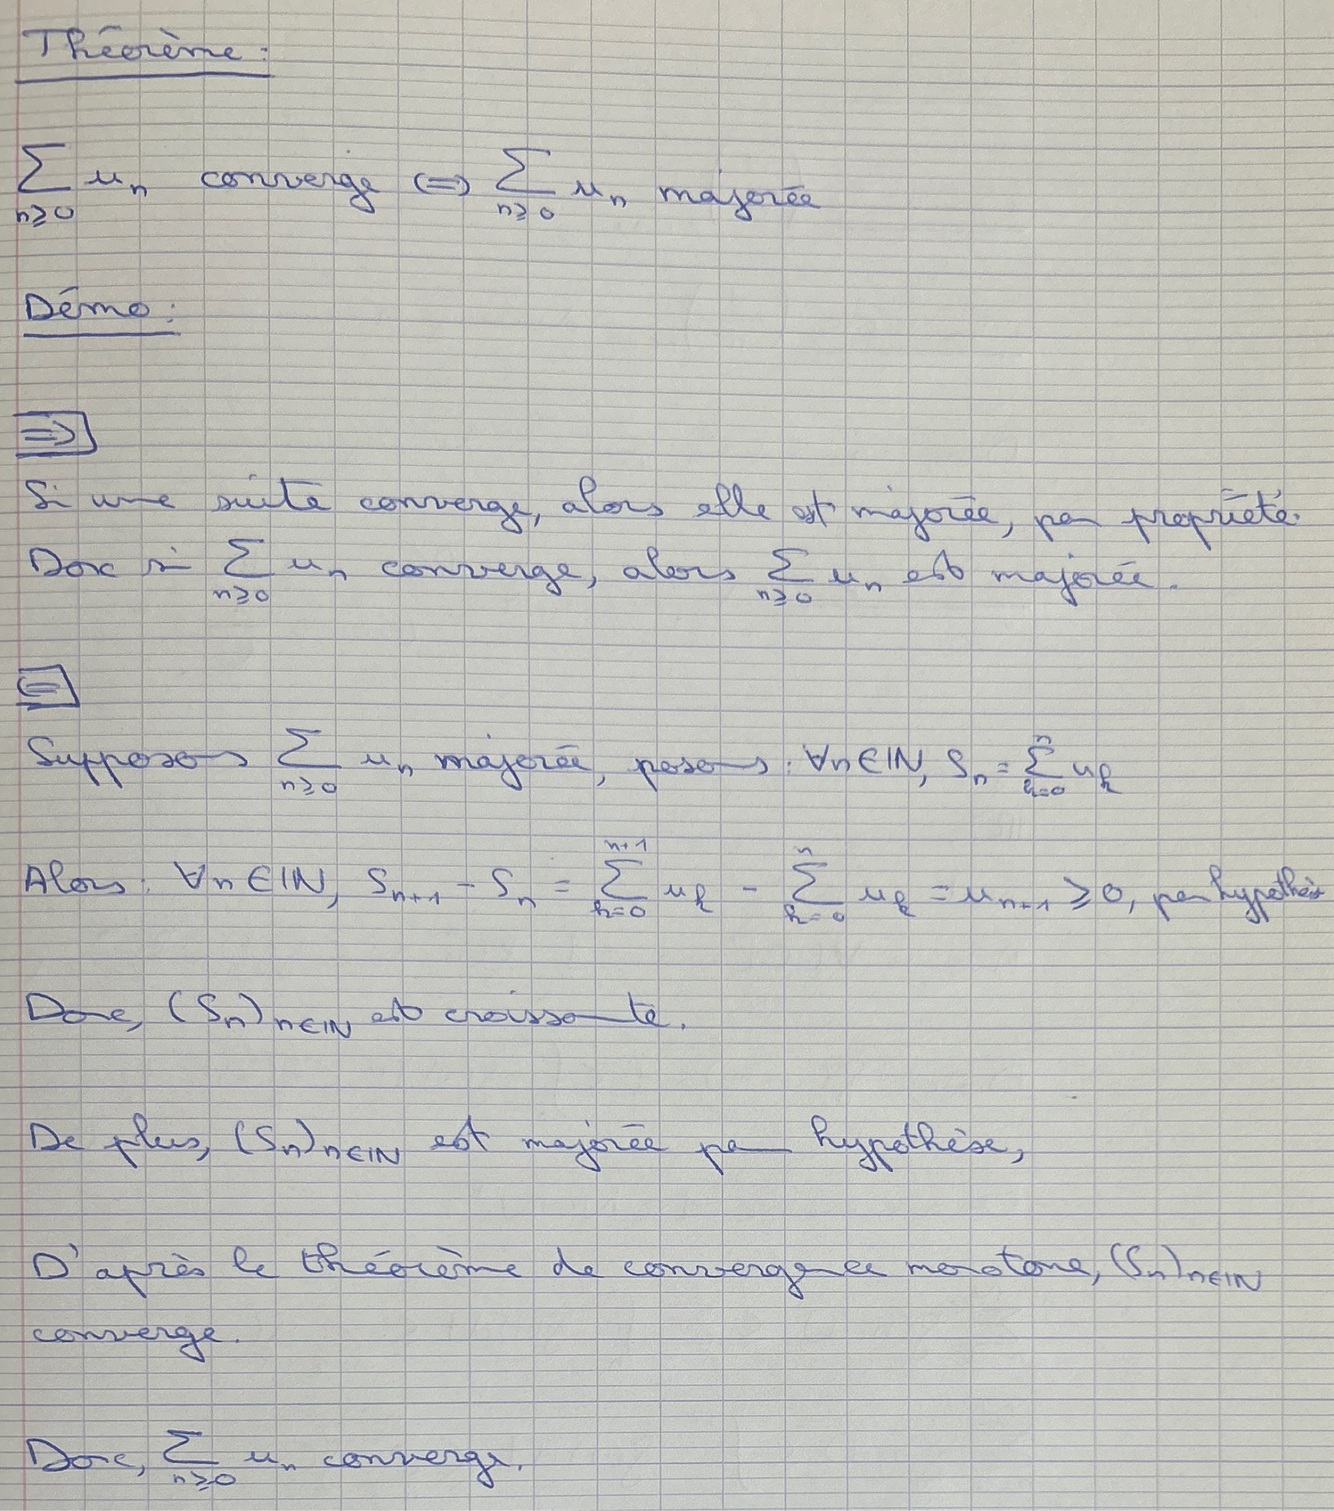 Théorème :
∑_{n≥0} u_n converge ⟺ ∑_{n≥0} u_n majorée
Démo :
⟹
Si une suite converge, alors elle est majorée, par propriété.
Donc si ∑_{n≥0} u_n converge, alors ∑_{n≥0} u_n est majorée.
⟸
Supposons ∑_{n≥0} u_n majorée, posons : ∀n∈ℕ, S_n = ∑_{k=0}^{n} u_k
Alors : ∀n∈ℕ, S_{n+1} - S_n = ∑_{k=0}^{n+1} u_k - ∑_{k=0}^{n} u_k = u_{n+1} ≥ 0, par hypothèse
Donc, (S_n)_{n∈ℕ} est croissante.
De plus, (S_n)_{n∈ℕ} est majorée par hypothèse,
D'après le théorème de convergence monotone, (S_n)_{n∈ℕ}
converge.
Donc, ∑_{n≥0} u_n converge.